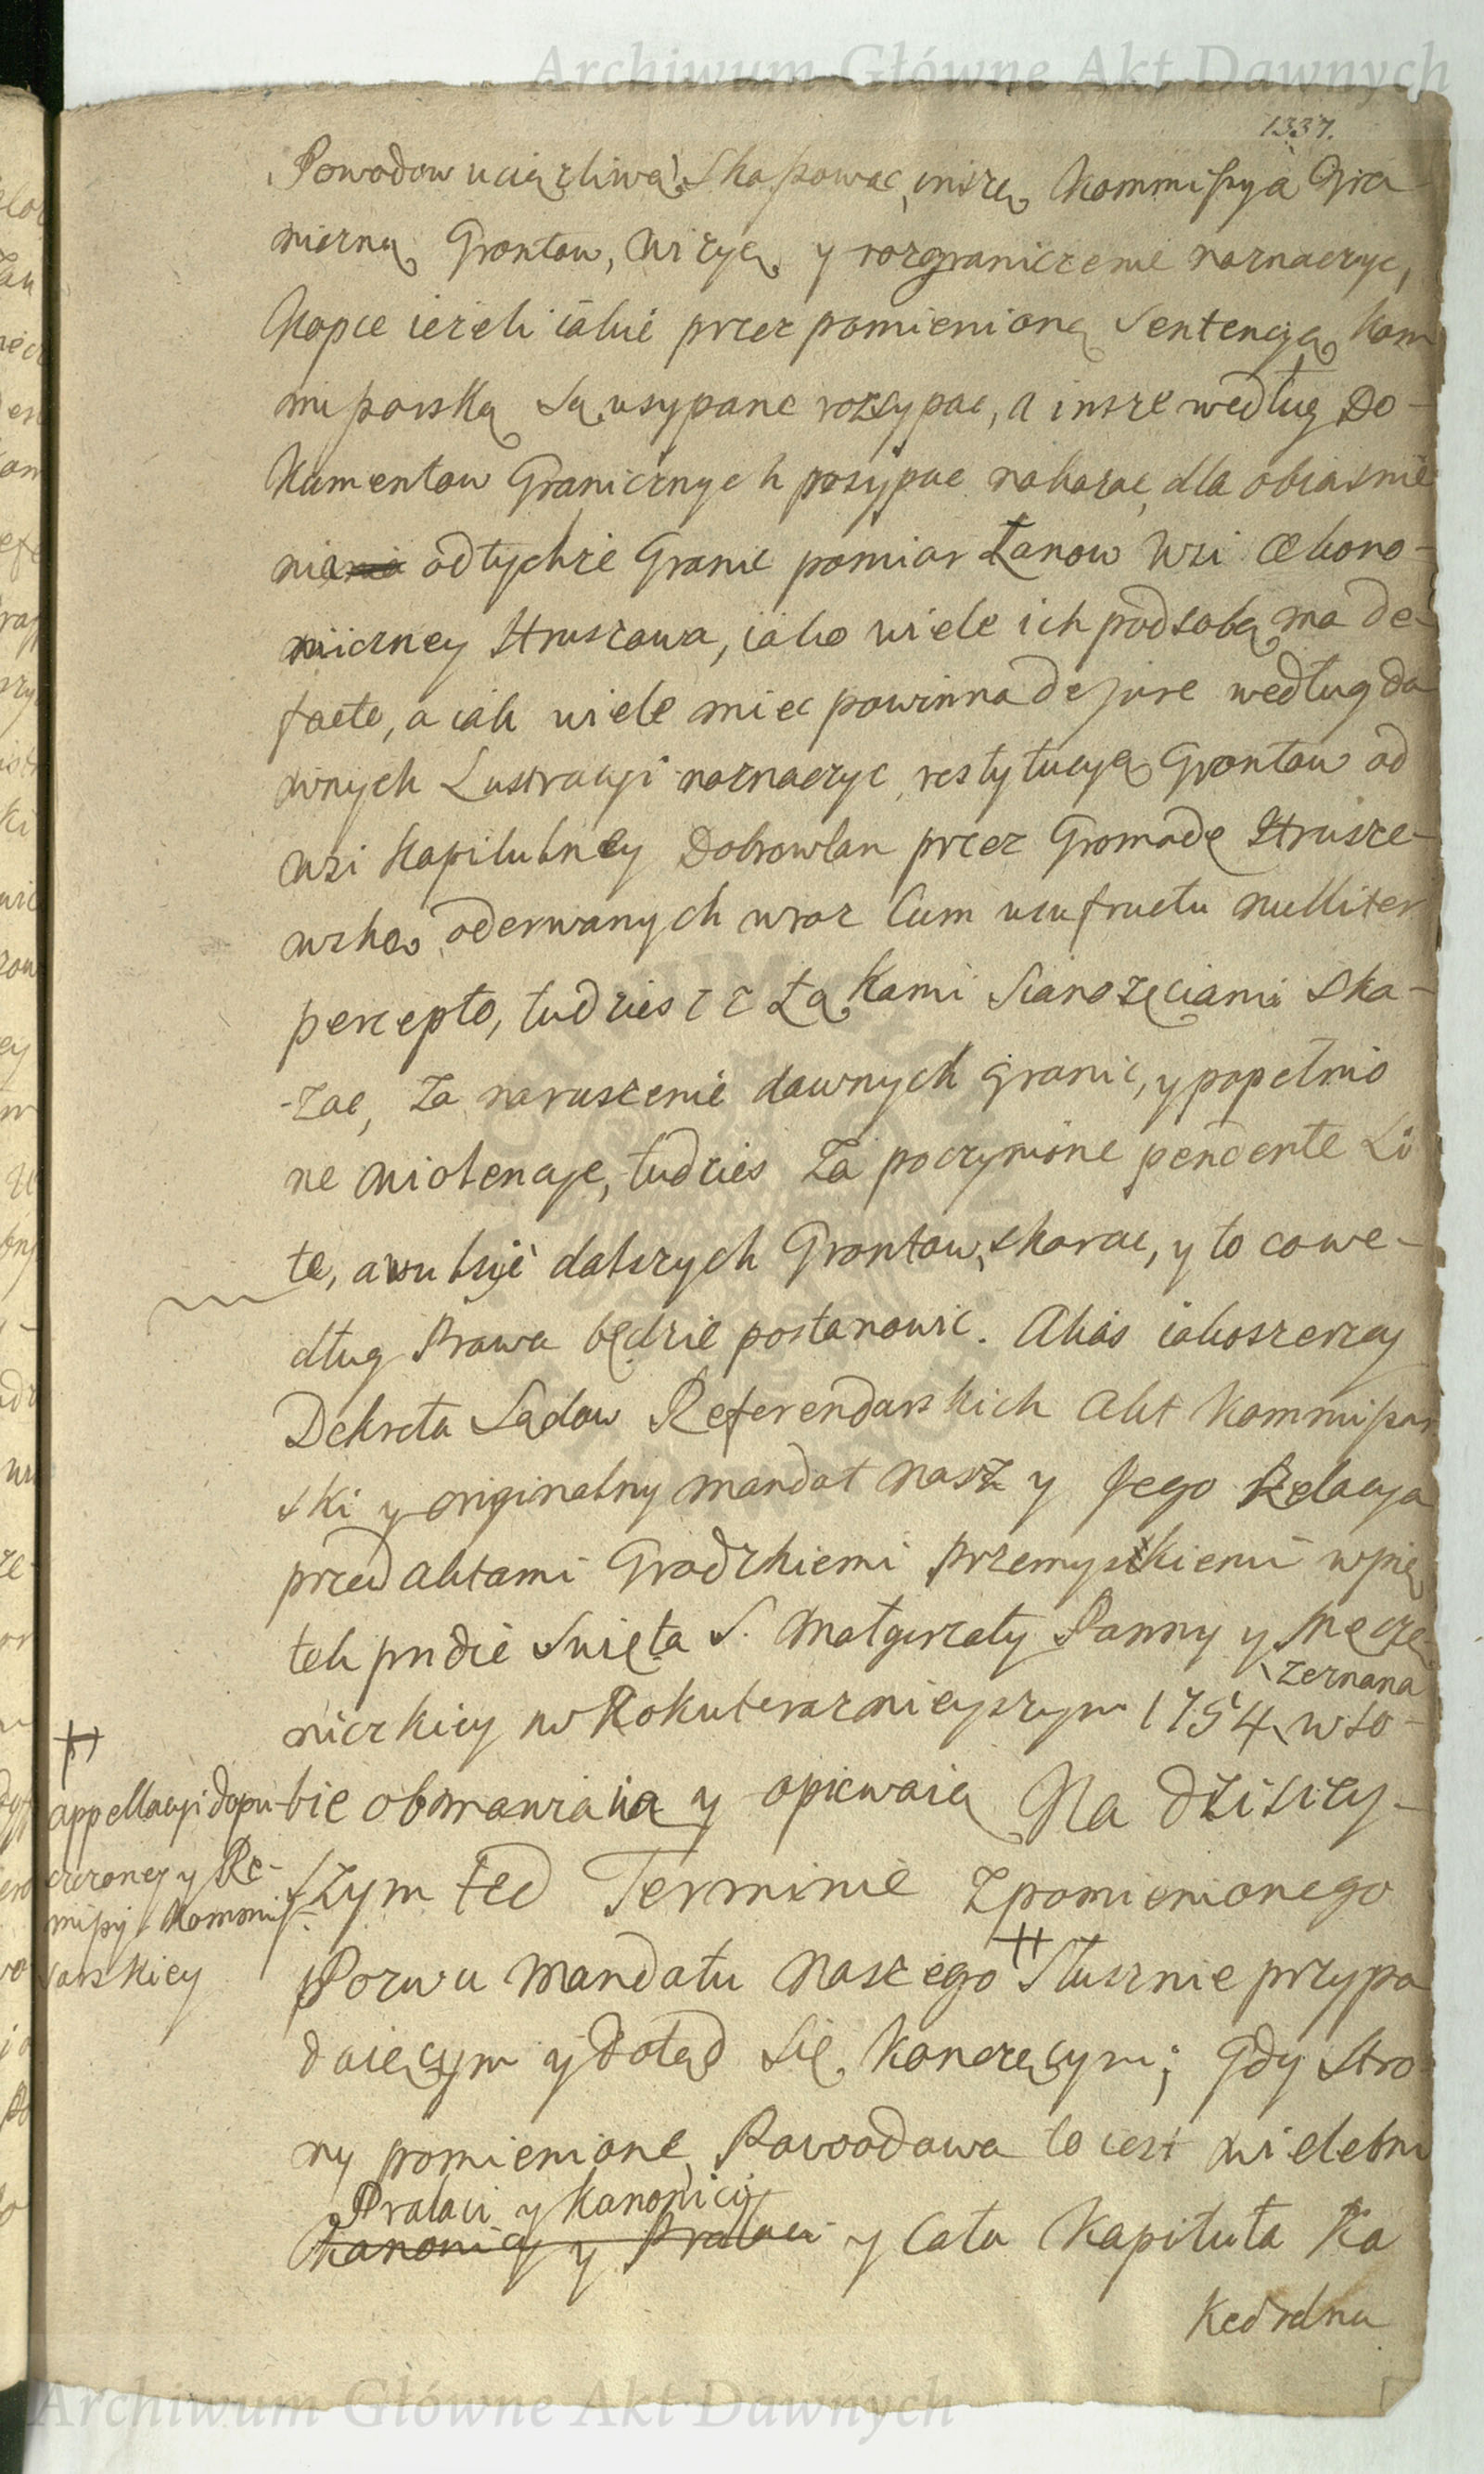 Archiwum Główne Akt Dawnych
1337.
Powodow uciązliwą Skassowac, inszą Kommissyą Gra
niczną Grontow, Wizyą y rozgraniczenie naznaczyc,
Kopce iezeli iakie przez pomienioną Sentencyą Kom
missarską Są usypane rozsypac, a insze według Do-
kumentow Granicznych posypac nakazac, dla obiasnie
nia od tychze Granic pomiar Łanow Wsi Œkono-
miczney Struszowa, iako wiele ich pod sobą ma de
facto, a iak wiele miec powinna de jure według da
wnych Lustracyi naznaczyc, restytucyą Grontow od
wsi Kapitulney Dobrowlan przez Gromadę Strusze-
wską oderwanych wraz Cum usufructu nulliter
percepto, tudziesz z Łąkami Sianozęciami Ska-
zac, Za naruszenie dawnych granic, y popełnio
ne wiolencye, tudzies Za poczynione pendente Li
te, awulsye dalszych Grontow, skarac, y to co we-
dług Prawa będzie postanowic. Alias iako szerzey
Dekreta Sądow Referendarskich Akt Kommissar
ski y originalny mandat nasz y Jego Relacya
przed Aktami Grodzkiemi Przemyskiemi w pią
tek pridie Swięta S. Małgorzaty Panny y Męcze
niczkiey w Roku teraznieyszym 1754 zeznana w so-
bie obmawiaią y opiewaią Na dzisiey-
szym ted Terminie z pomienionego
Pozwu Mandatu Naszego ++ Słusznie przypa
daiącym y dotąd Się Konczącym; gdy Stro
ny pomienione Powodowa to iest Wielebni
Prałaci y Kanonicy
Kanonicy y Prałaci y Cała Kapituła Ka
Kedralna
++
appellacyi dopu-
szczoney y Re-
missyi Kommis-
sarskiey
Archiwum Główne Akt Dawnych